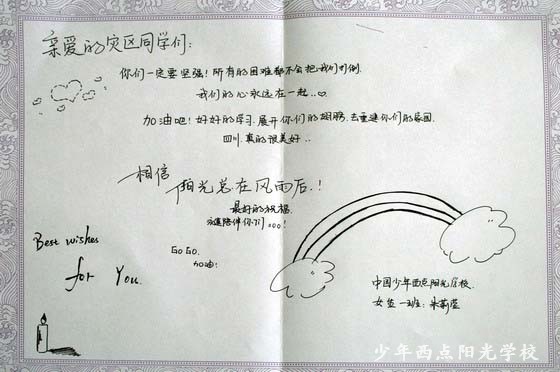 亲爱的灾区同学们:
你们一定要坚强!所有的困难都不会把我们打倒.
我们的心永远在一起...
加油吧!好好的学习.展开你们的翅膀.去重建你们的家园.
四川.真的很美好..
相信
阳光总在风雨后.!
最好的祝福.
永远陪伴你们ooo!
Best wishes
for You.
GoGo.
加油!
中国少年西点阳光学校.
女生一班:
少年西点阳光学校